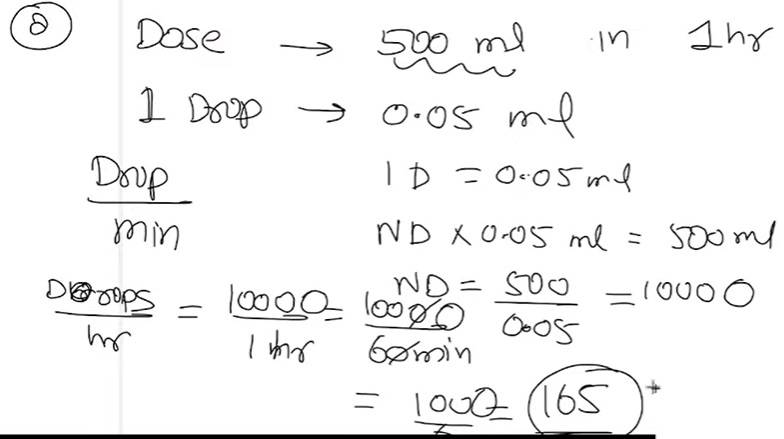 ② Dose → 500 ml in 1hr
1 Drop → 0.05 ml
Drop/min
1 D = 0.05 ml
ND x 0.05 ml = 500 ml
ND = 500/0.05 = 10000
Drops/hr = 10000/1 hr = 10000/60min
= 1000/6 = 165